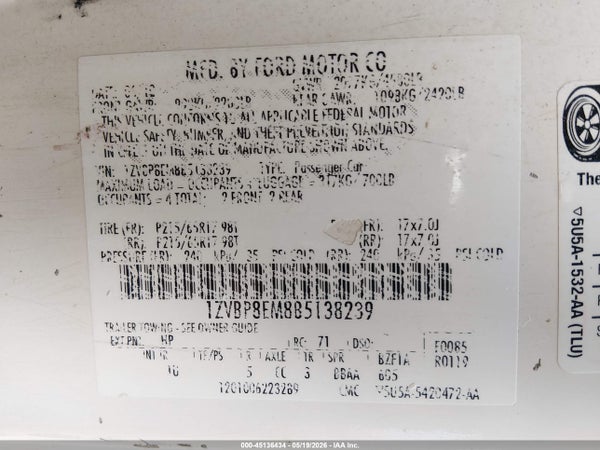 MFD. BY FORD MOTOR CO
REAR GAWR: 1098KG/2420LB
THIS VEHICLE CONFORMS TO ALL APPLICABLE FEDERAL MOTOR
VEHICLE SAFETY, BUMPER, AND THEFT PREVENTION STANDARDS
IN EFFECT ON THE DATE OF MANUFACTURE SHOWN ABOVE.
TYPE: Passenger Car
MAXIMUM LOAD = OCCUPANTS + LUGGAGE = 317KG/ 700LB
OCCUPANTS = 4 TOTAL: 2 FRONT 2 REAR
TIRE(FR): P215/65R17 98T (FR): 17x7.0J
(RR): P215/65R17 98T (RR): 17x7.0J
PRESSURE(FR): 240 kPa/ 35 PSI COLD (RR): 240 kPa/ 35 PSI COLD
1ZVBP8EM8B5138239
TRAILER TOWING - SEE OWNER GUIDE
EXT.PNT: HP RC: 71 DSO: F0085
INT TR TP/PS R AXLE TR SPR BZFTA R0119
5 CC 3 BBAA 605
1201006223289 CMC ▽5U5A-5420472-AA
The
▽5U5A-1532-AA (TLU)
000-45136434 - 05/19/2026 - IAA Inc.